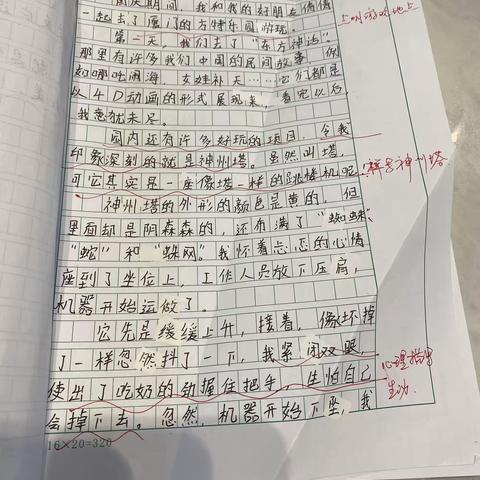 国庆期间,我和我的好朋友倩倩
一起去了厦门的方特乐园游玩。
第二天,我们去了“东方神话”
那里有许多我们中国的民间故事,例
如哪吒闹海、女娲补天……它们都是
以4D动画的形式展现来,看完以后
我意犹未尽。
园内还有许多好玩的项目,令我
印象深刻的就是神州塔。虽然叫塔,
可它其实是一座像塔一样的跳楼机呢
神州塔的外形的颜色是黄的,但
里面却是阴森森的,还有满了“蜘蛛”、
“蛇”和“蛛网”。我怀着忐忑的心情
座到了坐位上,工作人员放下压肩,
机器开始运做了。
它先是缓缓上升,接着,像坏掉
了一样忽然抖了一下,我紧闭双眼,
使出了吃奶的劲握住把手,生怕自己
会掉下去。忽然,机器开始下坠,我
16×20=320
神州塔
心理描写
生动